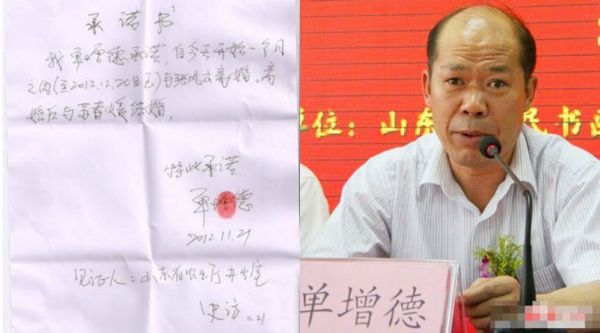 承诺书
我单增德承诺，自今天开始一个月
之内(至2012.12.20日已)与张方离婚。离
婚后与苏春媛结婚。
特此承诺
单增德
2012.11.21
见证人：山东省农业厅办公室
史访
11.21
单位：山东 民书画
单增德